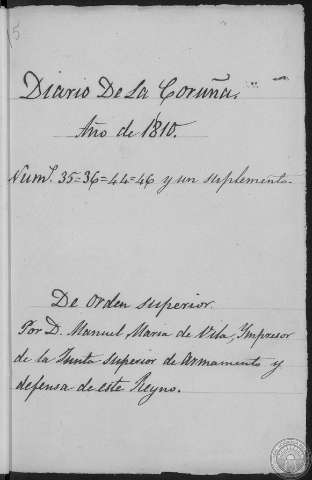 5
Diario De La Coruña.
Año de 1810.
Numˢ. 35=36=44=46 y un suplemento.
De orden superior.
Por D. Manuel Maria de Vila, Impresor
de la Junta superior de armamento y
defensa de este Reyno.